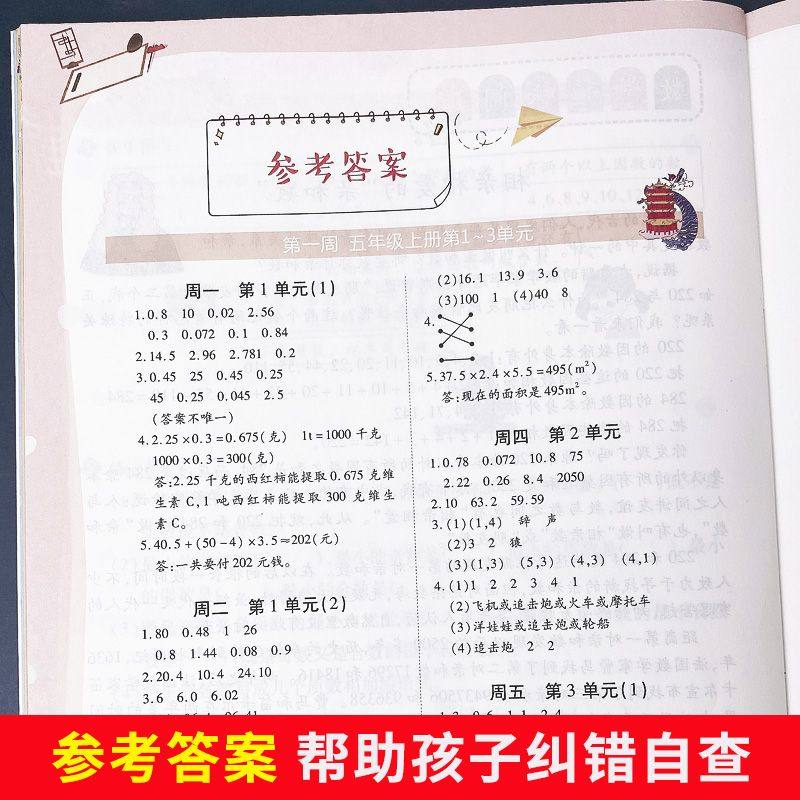 参考答案
第一周 五年级上册第1~3单元
周一 第1单元(1)
1.0.8 10 0.02 2.56
0.3 0.072 0.1 0.84
2.14.5 2.96 2.781 0.2
3.0.45 25 0.45 0.25
45 0.25 0.045 2.5
(答案不唯一)
4.2.25×0.3=0.675(克) 1t=1000千克
1000×0.3=300(克)
答:2.25千克的西红柿能提取0.675克维
生素C,1吨西红柿能提取300克维生
素C。
5.40.5+(50-4)×3.5≈202(元)
答:一共要付202元钱。
周二 第1单元(2)
1.80 0.48 1 26
0.8 1.44 0.08 0.9
2.20.4 10.4 24.10
3.6 6.0 6.02
(2)16.1 13.9 3.6
(3)100 1 (4)40 8
4.
5.37.5×2.4×5.5=495(m²)
答:现在的面积是495m²。
周四 第2单元
1.0.78 0.072 10.8 75
2.22 0.26 8.4 2050
2.10 63.2 59.59
3.(1)(1,4) 辞 声
(2)3 2 狼
(3)(1,3) (5,3) (4,3) (4,1)
4.(1)1 2 2 3 4 1
(2)飞机或追击炮或火车或摩托车
(3)洋娃娃或追击炮或轮船
(4)追击炮 2 2
周五 第3单元(1)
参考答案 帮助孩子纠错自查